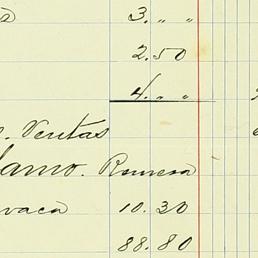 3. „ „
2.50
4. „ „
Ventas
lamo. Romesa
vaca 10.30
88.80